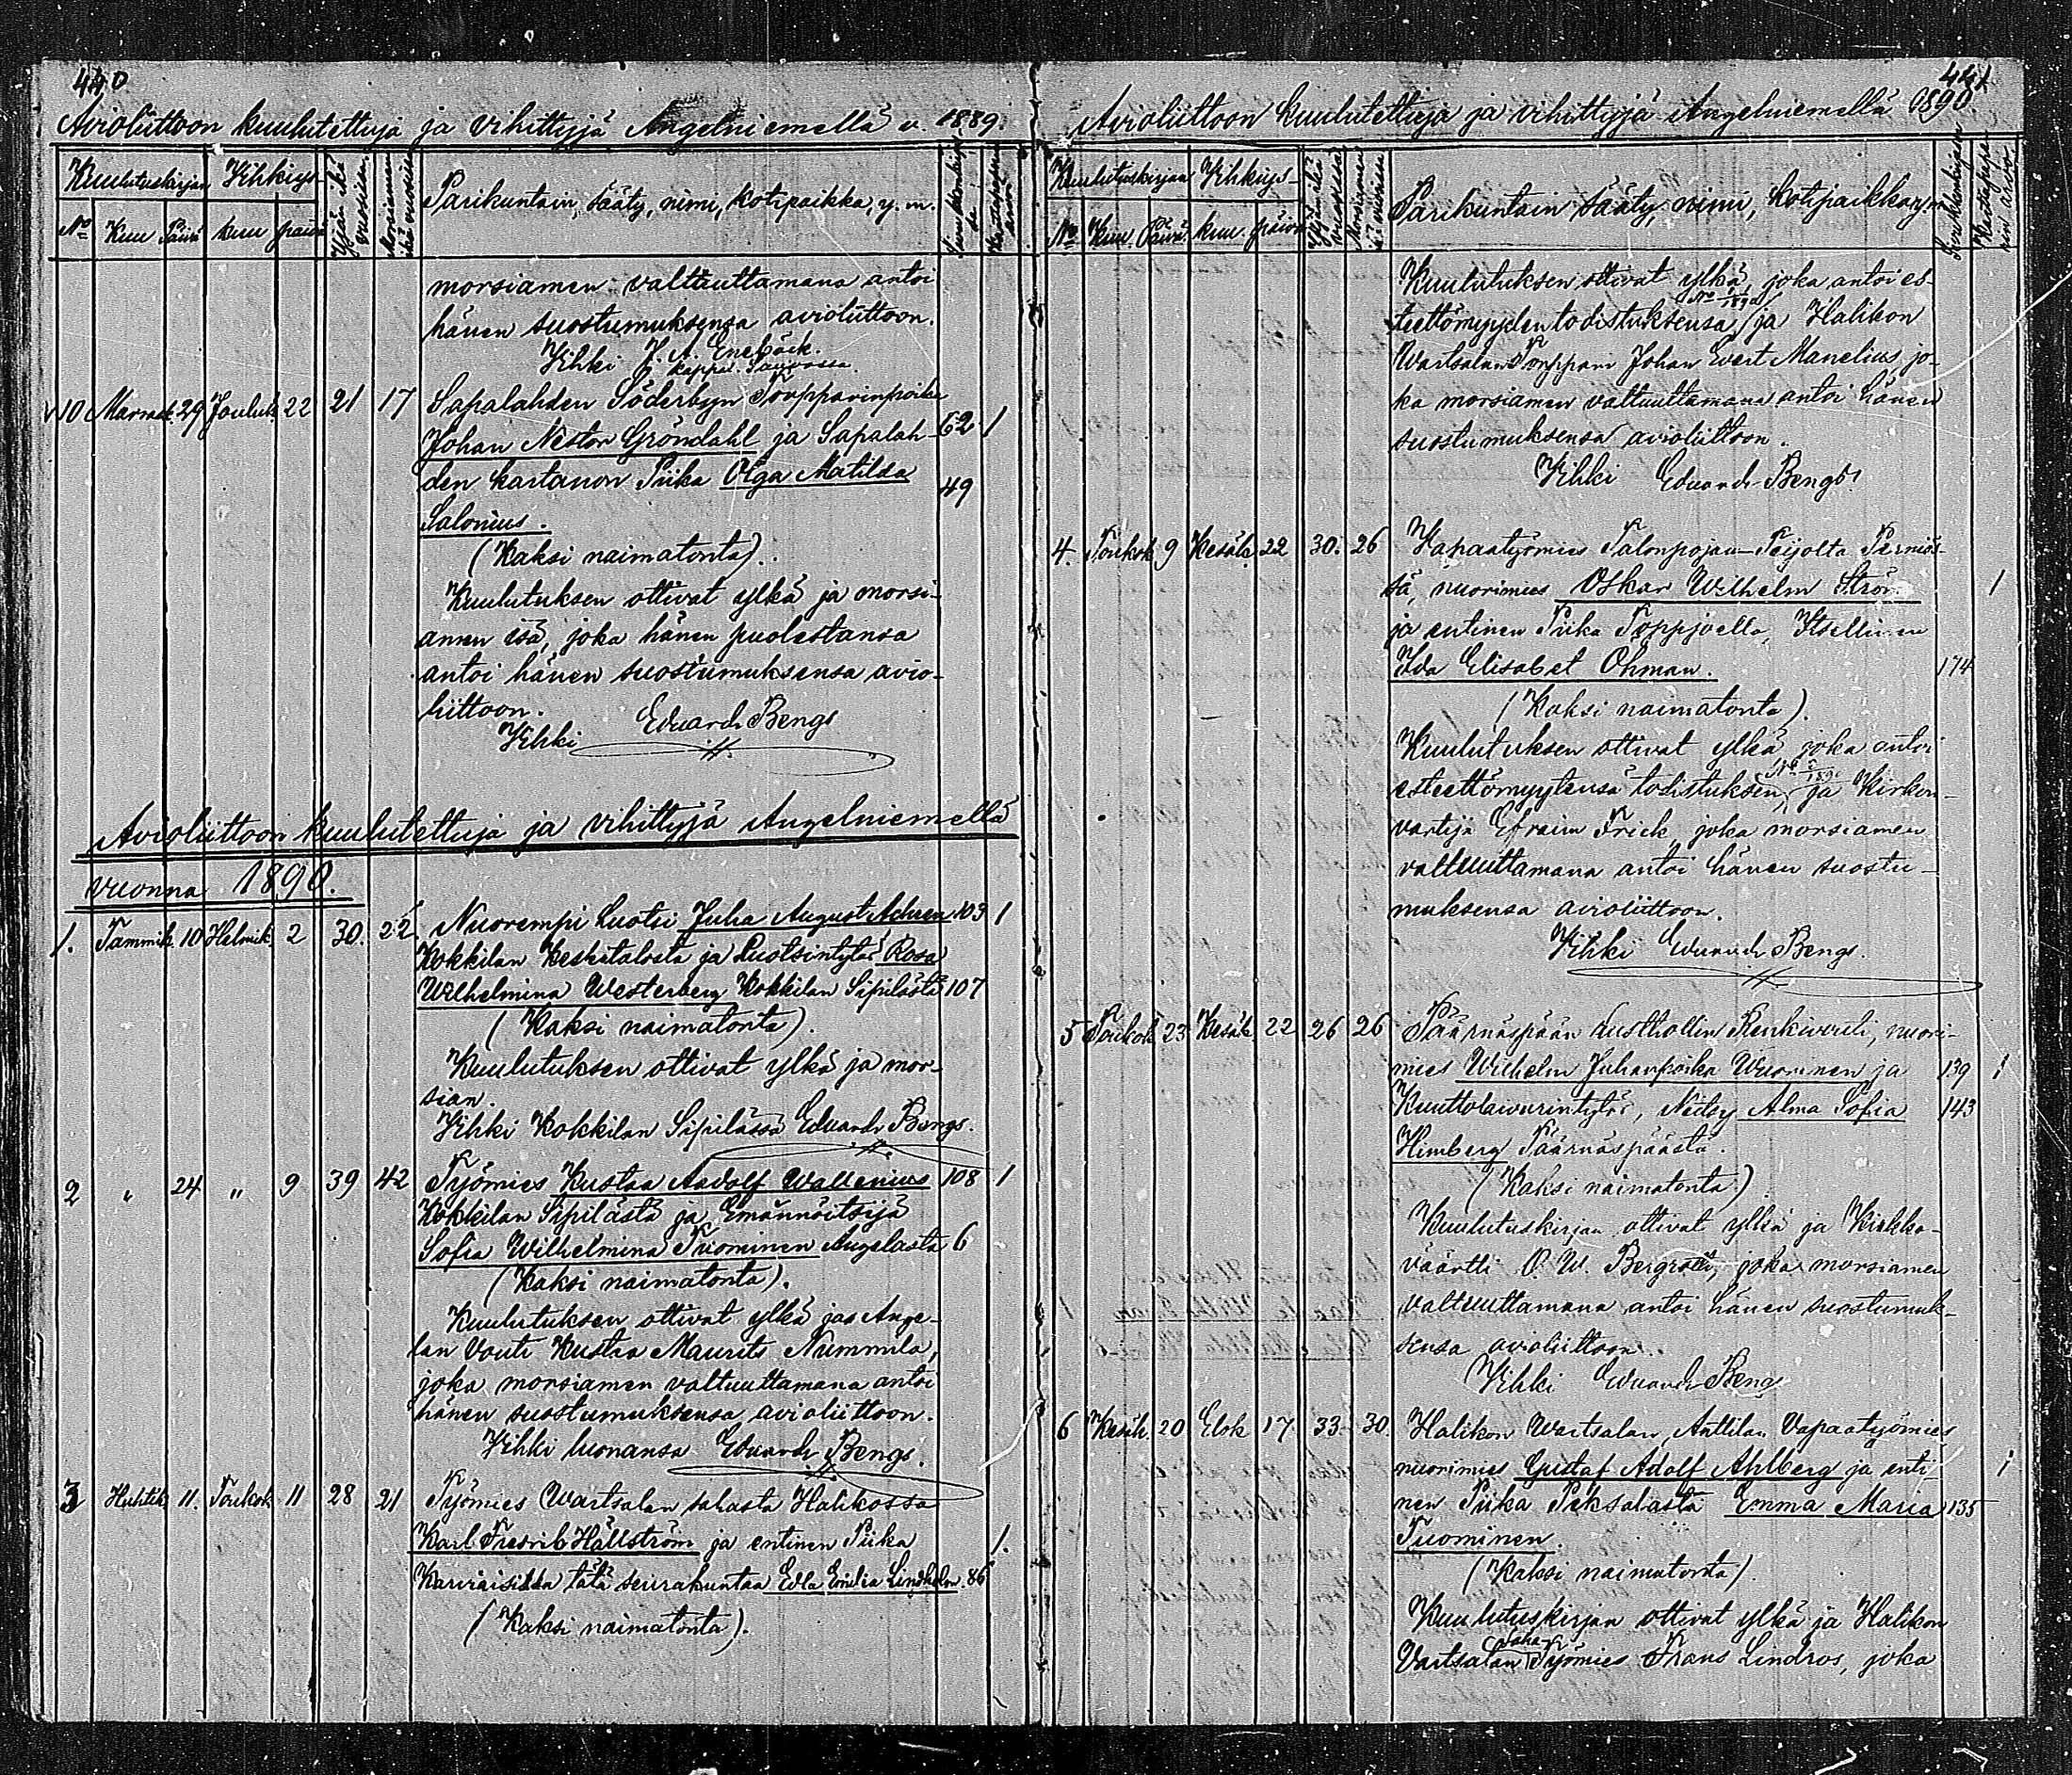 440
Avioliittoon kuulutettuja ja vihittyjä Angelniemellä v. 1889.
Kuulutuskirjan Vihkiys-
No Kuu Päivä kuu päivä
Yljän ikä vuosissa
Morsiamen ikä vuosissa
Parikuntain sääty, nimi, kotipaikka, y. m.
morsiamen valtuuttamana antoi
hänen suostumuksensa avioliittoon.
Vihki J. A. Enebäck.
kappal. Sauvossa.
10 Marrask. 29 Jouluk. 22 21 17 Sapalahden Söderbyn Torpparinpoika
Johan Nestor Gröndahl ja Sapalah- 62 1
den kartanon Piika Olga Matilda 49
Salonius.
(Kaksi naimatonta).
Kuulutuksen ottivat ylkä ja morsi-
amen isä, joka hänen puolestansa
antoi hänen suostumuksensa avio-
liittoon.
Vihki Eduard Bengs
Avioliittoon kuulutettuja ja vihittyjä Angelniemellä
vuonna 1890.
1. Tammik. 10 Helmik. 2 30. 22. Nuorempi Luotsi Juha August Achren 103 1
Kokkilan Keskitalosta ja Luotsintytär Rosa
Wilhelmina Westerberg Kokkilan Sipilästä 107
(Kaksi naimatonta).
Kuulutuksen ottivat ylkä ja mor-
sian.
Vihki Kokkilan Sipilässä Eduard Bengs.
2 " 24 " 9 39 42 Työmies Kustaa Aadolf Wallenius 108 1
Kokkilan Sipilästä ja Emännöitsijä
Sofia Wilhelmina Tuominen Angelasta 6
(Kaksi naimatonta).
Kuulutuksen ottivat ylkä ja Ange-
lan Vouti Kustaa Maurits Nummila,
joka morsiamen valtuuttamana antoi
hänen suostumuksensa avioliittoon.
Vihki luonansa Eduard Bengs.
3 Huhtik. 11. Toukok. 11 28 21 Työmies Wartsalan sahasta Halikossa
Karl Fredrik Hällström ja entinen Piika 1.
tätä seurakuntaa Edla Emilia Lindholm. 86
(Kaksi naimatonta).
441
Avioliittoon kuulutettuja ja vihittyjä Angelniemellä 1890.
Kuulutuskirjan Vihkiys-
No Kuu Päivä kuu päivä
Yljän ikä vuosissa
Morsiamen ikä vuosissa
Parikuntain sääty, nimi, kotipaikka y. m.
Kuulutuksen ottivat ylkä, joka antoi es-
teettömyyden todistuksensa ja Halikon
Wartsalan Torppari Johan Evert Manelius jo-
ka morsiamen valtuuttamana antoi hänen
suostumuksensa avioliittoon.
Vihki Eduard Bengs.
4. Toukok. 9 Kesäk. 22 30. 26 Vapaatyömies Talonpojan-Teijolta Perniös-
sä, nuorimies Oskar Wilhelm Ström 1
ja entinen Piika Toppjoelta, Itsellinen
Ida Elisabet Öhman. 174
(Kaksi naimatonta).
Kuulutuksen ottivat ylkä joka antoi
esteettömyytensä todistuksen, ja Kirkon-
vartija Efraim Frick joka morsiamen
valtuuttamana antoi hänen suostu-
muksensa avioliittoon.
Vihki Eduard Bengs.
5 Toukok. 23 Kesäk. 22 26 26 Päärnäspään Rusthollin Renkivouti, nuori-
mies Wilhelm Juhanpoika Wuorinen ja 139 1
Kuuttolaivurintytär, Neitsy Alma Sofia 143
Himberg Päärnäspäästä.
(Kaksi naimatonta)
Kuulutuskirjan ottivat ylkä ja Kirkko-
väärtti O. W. joka morsiamen
valtuuttamana antoi hänen suostumuk-
sensa avioliittoon.
Vihki Eduard Bengs
6 Kesäk. 20 Elok. 17 33. 30. Halikon Wartsalan Anttilan Vapaatyömies
nuorimies Gustaf Adolf Ahlberg ja enti- 1
nen Piika Peksalasta Emma Maria 135
Tuominen.
(Kaksi naimatonta).
Kuulutuskirjan ottivat ylkä ja Halikon
Vartsalan Saha Työmies Frans Lindros, joka